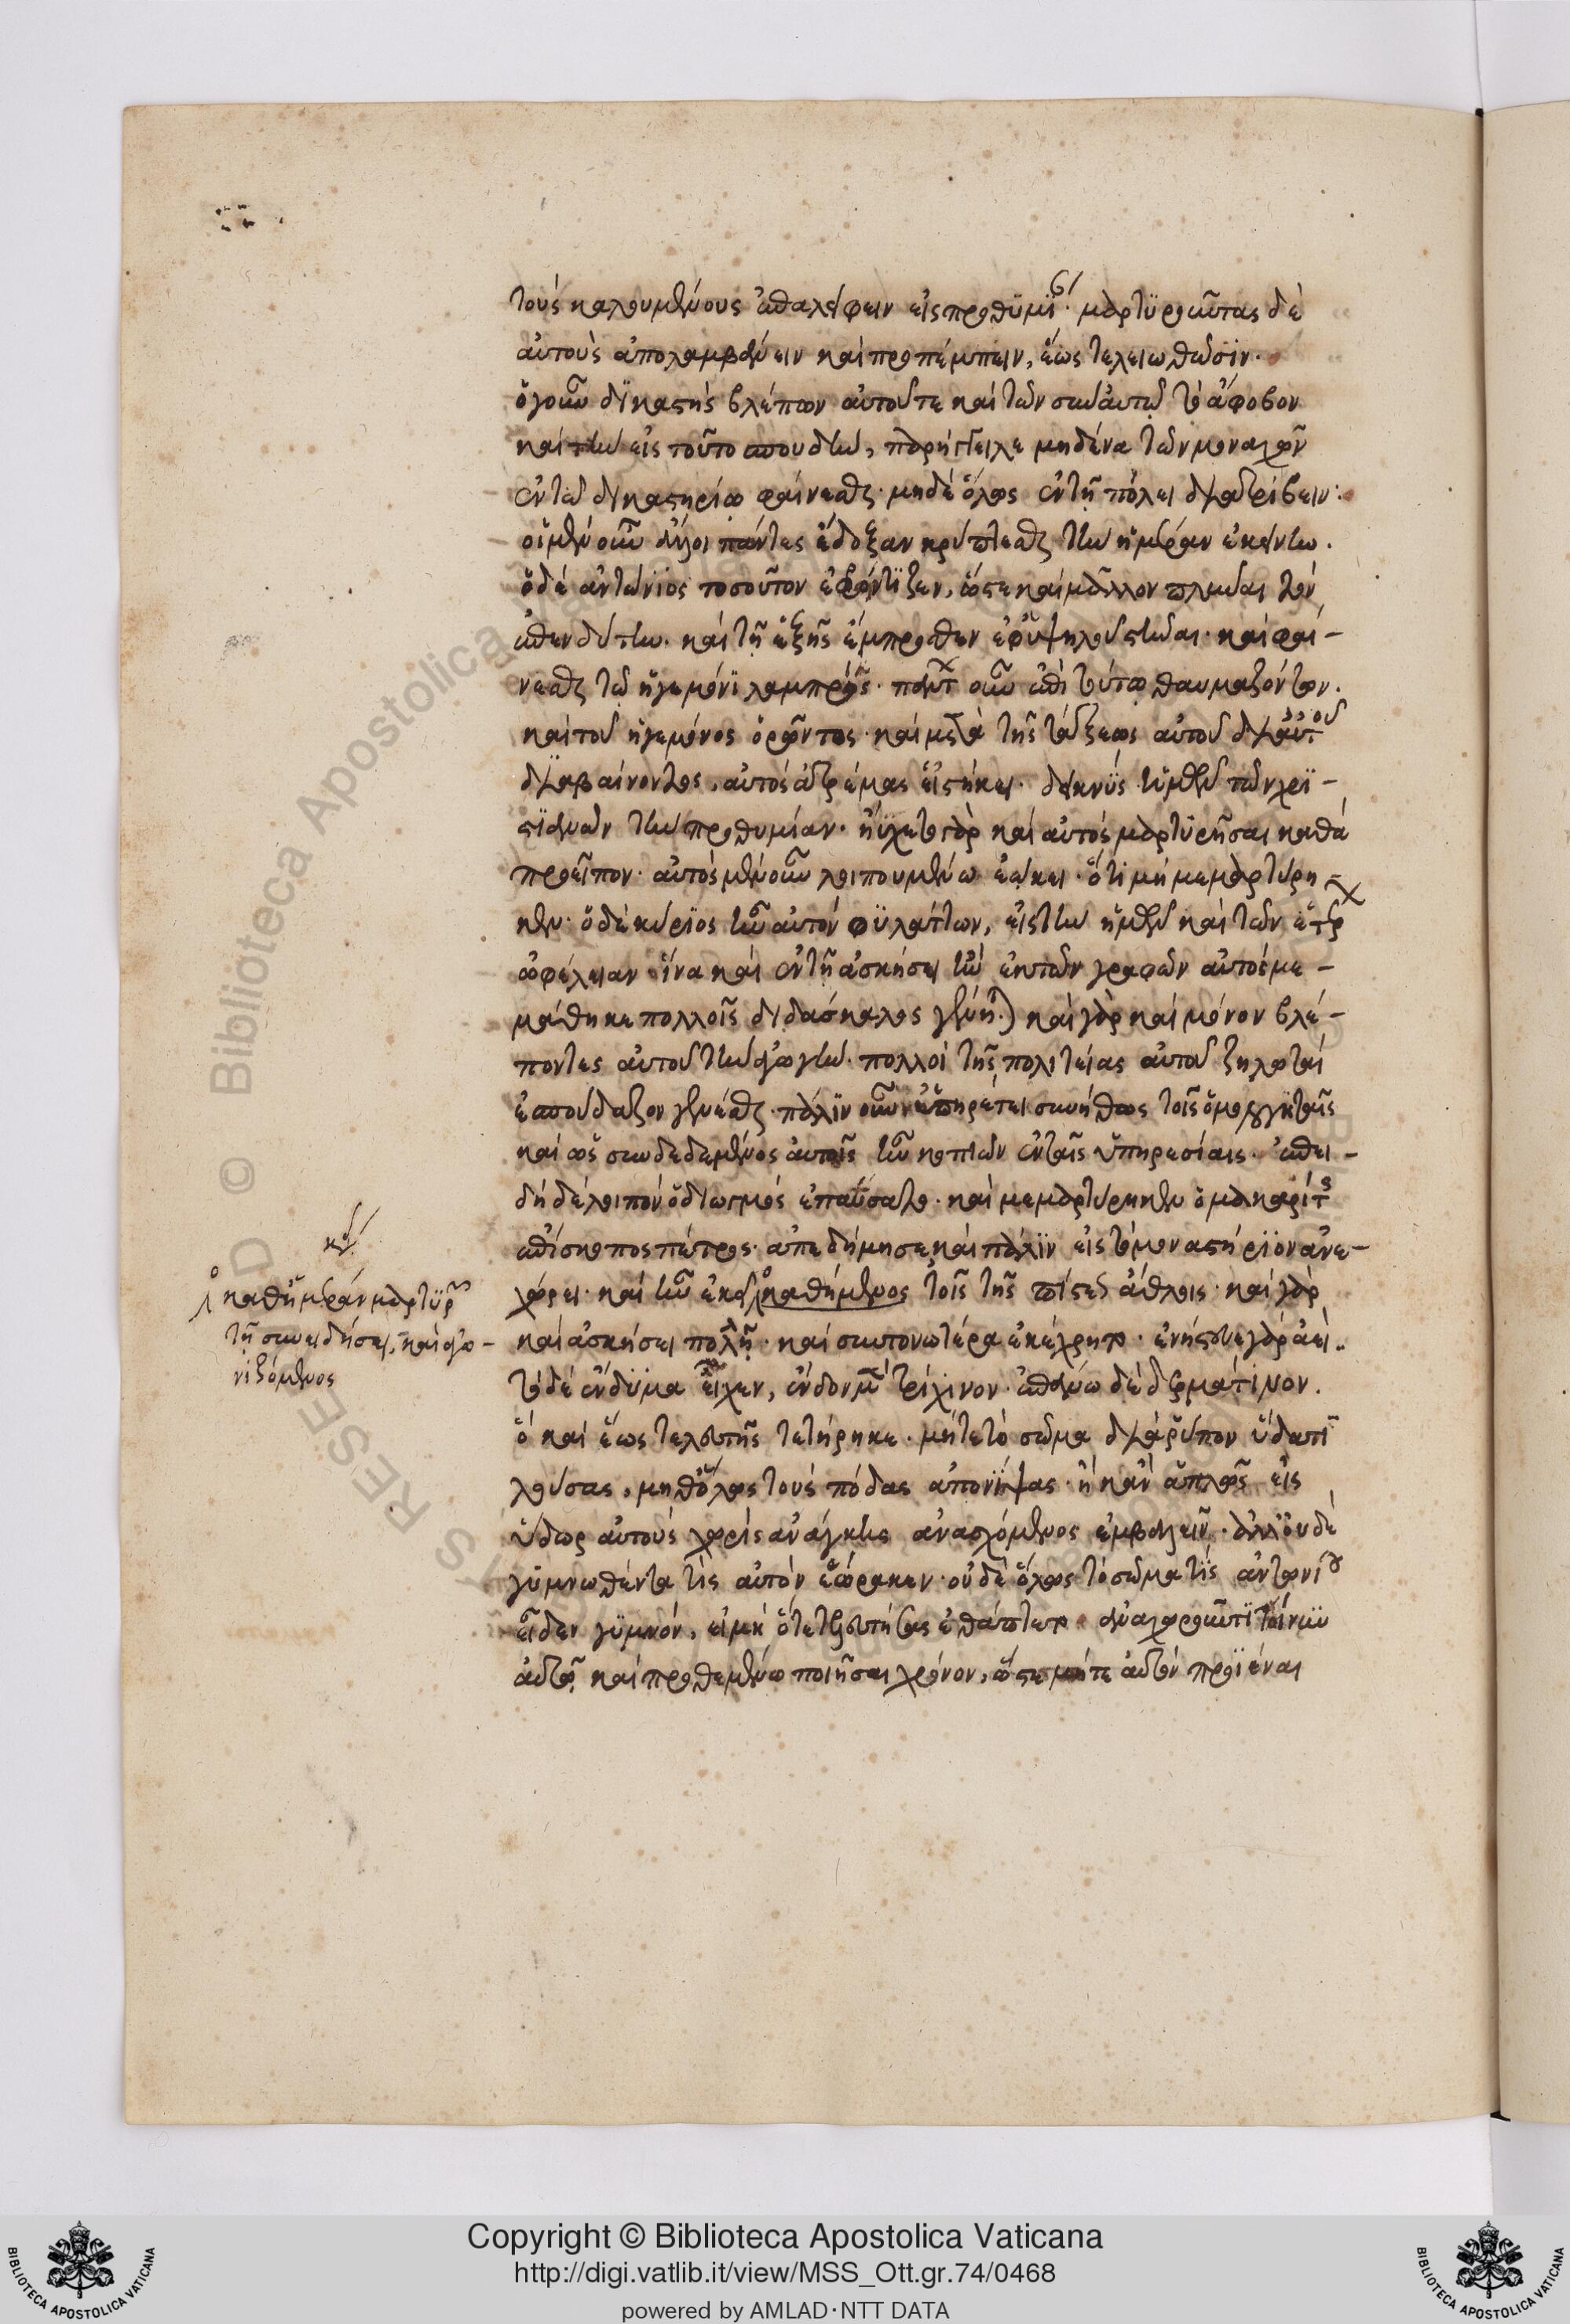 τοὺς καλουμένους ἐπαλείφειν εἰς προθυμίαν· μαρτυροῦντας δὲ
αὐτοὺς ἀπολαμβάνειν καὶ προπέμπειν, ἕως τελειωθῶσιν.
ὁ γοῦν δικαστὴς βλέπων αὐτοῦ τε καὶ τῶν σὺν αὐτῷ τὸ ἄφοβον
καὶ τὴν εἰς τοῦτο σπουδὴν, παρήγγειλε μηδένα τῶν μοναχῶν
ἐν τῷ δικαστηρίῳ φαίνεσθαι· μηδὲ ὅλως ἐν τῇ πόλει διατρίβειν·
οἱ μὲν οὖν ἄλλοι πάντες ἔδοξαν κρύπτεσθαι τὴν ἡμέραν ἐκείνην.
ὁ δὲ ἀντώνιος τοσοῦτον ἐφρόντιζεν, ὥστε καὶ μᾶλλον πλῦναι τὸν
ἐπενδύτην. καὶ τῇ ἑξῆς ἔμπροσθεν ἐφ' ὑψηλοῦ στῆναι· καὶ φαί-
νεσθαι τῷ ἡγεμόνι λαμπρῶς· πάντων οὖν ἐπὶ τούτῳ θαυμαζόντων.
καὶ τοῦ ἡγεμόνος ὁρῶντος· καὶ μετὰ τῆς τάξεως αὐτοῦ δι' αὐτοῦ
διαβαίνοντος, αὐτὸς ἀτρέμας εἱστήκει· δεικνὺς ἡμῶν τῶν χρι-
στιανῶν τὴν προθυμίαν· ηὔχετο γὰρ καὶ αὐτὸς μαρτυρῆσαι καθὰ
προεῖπον· αὐτὸς μὲν οὖν λοιπουμένῳ ἐῴκει· ὅτι μὴ μεμαρτύρη-
κεν· ὁ δὲ κύριος ἦν αὐτὸν φυλάττων, εἰς τὴν ἡμῶν καὶ τῶν ἑτέρων
ὠφέλειαν· ἵνα καὶ ἐν τῇ ἀσκήσει ἣν ἐκ τῶν γραφῶν αὐτὸς με-
μάθηκε πολλοῖς διδάσκαλος γένηται) καὶ γὰρ καὶ μόνον βλέ-
ποντες αὐτοῦ τὴν ἀγωγὴν· πολλοὶ τῆς πολιτείας αὐτοῦ ζηλωταὶ
ἐσπούδαζον γενέσθαι· πάλιν οὖν ὑπηρέτει συνήθως τοῖς ὁμολογηταῖς
καὶ ὡς συνδεδεμένος αὐτοῖς ἦν κοπιῶν ἐν ταῖς ὑπηρεσίαις. ἐπει-
δὴ δὲ λοιπὸν ὁ διωγμὸς ἐπαύσατο· καὶ μεμαρτύρηκεν ὁ μακαρίτης
ἐπίσκοπος πέτρος· ἀπεδήμησε καὶ πάλιν εἰς τὸ μοναστήριον ἀνε-
χώρει· καὶ ἦν ἐκεῖ καθήμενος τοῖς τῆς πίστεως ἄθλοις· καὶ γὰρ
καὶ ἀσκήσει πολλῇ· καὶ συντονωτέρα ἐκέχρητο· ἐνήστευε γὰρ ἀεὶ..
τὸ δὲ ἔνδυμα εἶχεν, ἔνδον μὲν τρίχινον· ἐπάνω δὲ δερμάτινον.
ὃ καὶ ἕως τελευτῆς τετήρηκε· μήτε τὸ σῶμα διὰ ῥύπον ὕδατι
λούσας, μηθ' ὅλως τοὺς πόδας ἀπονίψας· ἢ κἂν ἁπλῶς εἰς
ὕδωρ αὐτοὺς χωρὶς ἀνάγκης ἀνασχόμενος ἐμβαλεῖν· ἀλλ' οὐδὲ
γυμνωθέντα τὶς αὐτὸν ἑώρακεν· οὐδὲ ὅλως τὸ σῶμα τὶς ἀντωνίου
εἶδεν γυμνόν, εἰ μὴ ὅτε τελευτήσας ἐθάπτετο· ἀναχωροῦντι τοίνυν
αὐτῷ καὶ προθεμένῳ ποιῆσαι χρόνον, ὥστε μήτε αὐτὸν προϊέναι
καθ' ἡμέραν μαρτυρῶν
τῇ συνειδήσει, καὶ ἀγω-
νιζόμενος
Copyright © Biblioteca Apostolica Vaticana
http://digi.vatlib.it/view/MSS_Ott.gr.74/0468
powered by AMLAD·NTT DATA